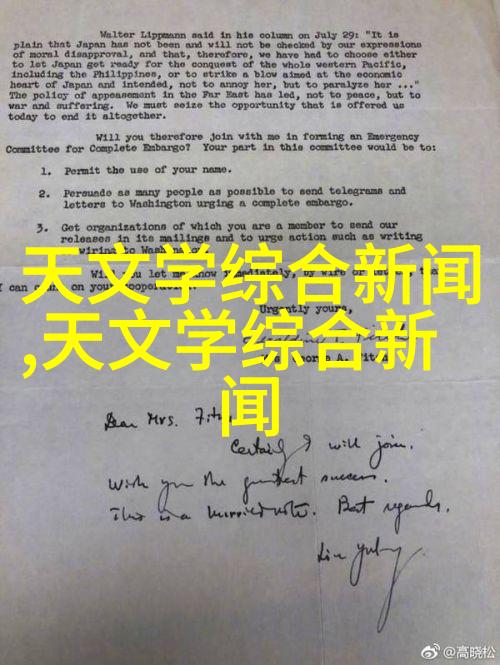 Walter Lippmann said in his column on July 29: "It is
plain that Japan has not been and will not be checked by our expressions
of moral disapproval, and that, therefore, we have had to choose either
to let Japan get ready for the conquest of the whole western Pacific,
including the Philippines, or to strike a blow aimed at the economic
heart of Japan and intended, not to annoy her, but to paralyze her ..."
The policy of appeasement in the Far East has led, not to peace, but to
war and suffering. We must seize the opportunity that is offered us
today to end it altogether.
Will you therefore join with me in forming an Emergency
Committee for Complete Embargo? Your part in this committee would be to:
1. Permit the use of your name.
2. Persuade as many people as possible to send telegrams and
letters to Washington urging a complete embargo.
3. Get organizations of which you are a member to send our
releases in its mailings and to urge action such as writing
wiring to Washington
天文学综合新闻
,天文学综合新
闻
Will you let me know immediately, by wire or
can on your cooperation
Urgently yours,
George A. Fitch
Dear Mrs. Fitch
Certainly I will join.
Wish you the greatest success.
This is a hurried note. Best regards.
Lin Yutang
@高晓松